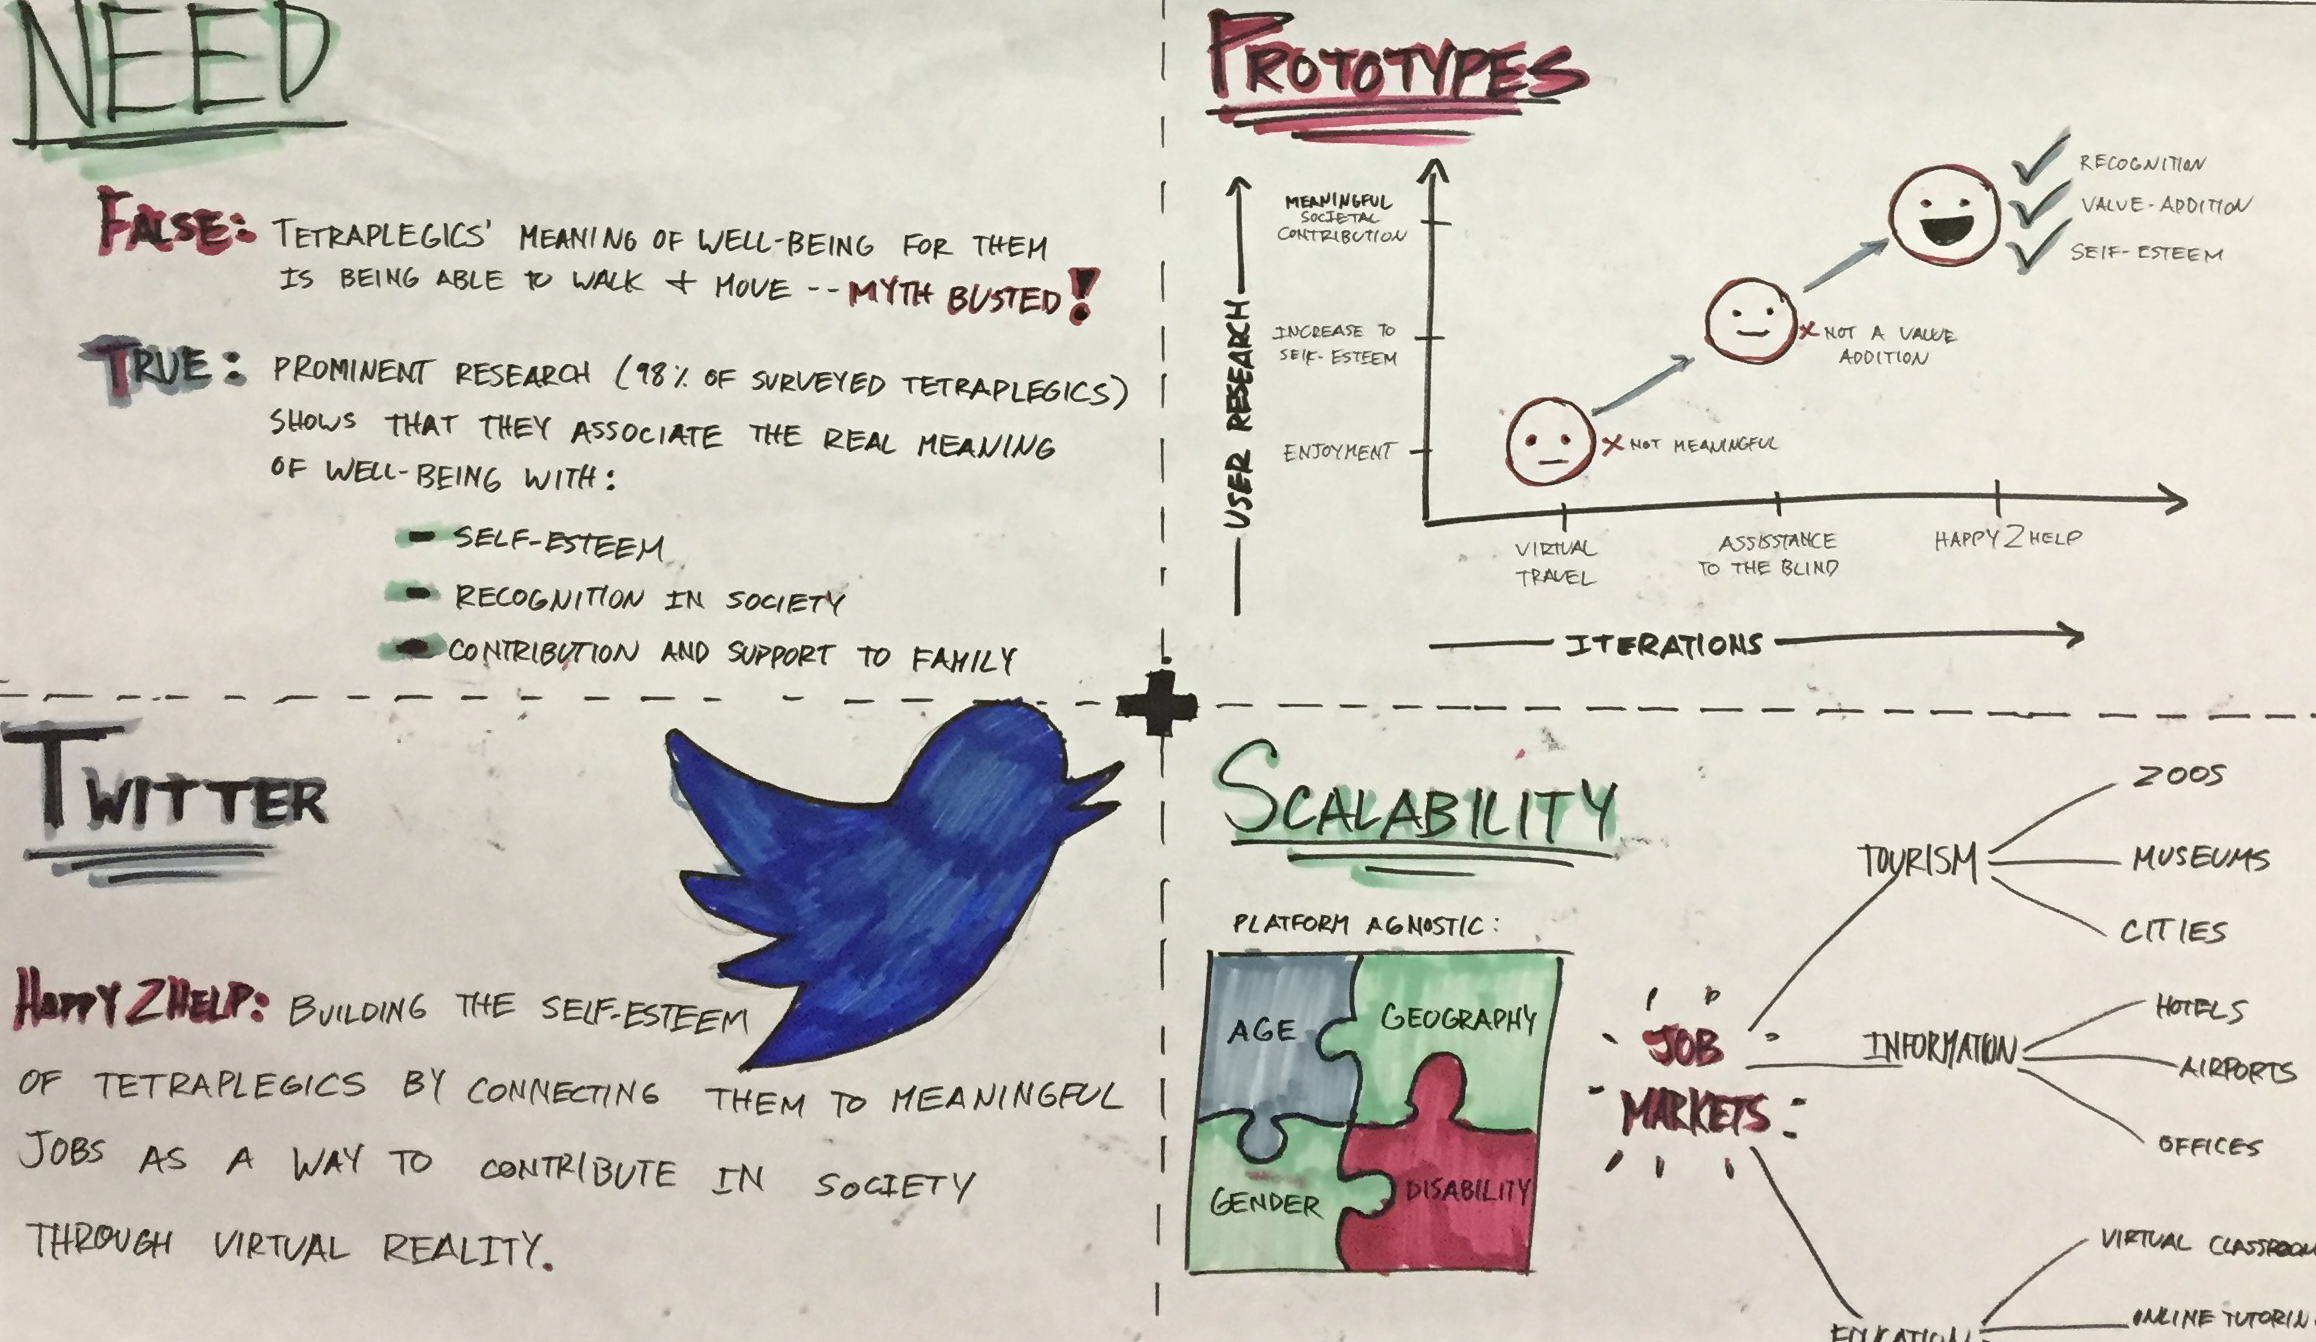 NEED
FALSE: TETRAPLEGICS' MEANING OF WELL-BEING FOR THEM
IS BEING ABLE TO WALK + MOVE -- MYTH BUSTED!
TRUE: PROMINENT RESEARCH (98% OF SURVEYED TETRAPLEGICS)
SHOWS THAT THEY ASSOCIATE THE REAL MEANING
OF WELL-BEING WITH:
- SELF-ESTEEM
- RECOGNITION IN SOCIETY
- CONTRIBUTION AND SUPPORT TO FAMILY
PROTOTYPES
USER RESEARCH
MEANINGFUL
SOCIETAL
CONTRIBUTION
INCREASE TO
SELF-ESTEEM
ENJOYMENT
RECOGNITION
VALUE-ADDITION
SELF-ESTEEM
X NOT A VALUE
ADDITION
X NOT MEANINGFUL
VIRTUAL
TRAVEL
ASSISSTANCE
TO THE BLIND
HAPPY2HELP
ITERATIONS
TWITTER
HAPPY2HELP: BUILDING THE SELF-ESTEEM
OF TETRAPLEGICS BY CONNECTING THEM TO MEANINGFUL
JOBS AS A WAY TO CONTRIBUTE IN SOCIETY
THROUGH VIRTUAL REALITY.
SCALABILITY
PLATFORM AGNOSTIC:
AGE
GEOGRAPHY
GENDER
DISABILITY
JOB
MARKETS
TOURISM
ZOOS
MUSEUMS
CITIES
INFORMATION
HOTELS
AIRPORTS
OFFICES
EDUCATION
VIRTUAL CLASSROOM
ONLINE TUTORIN